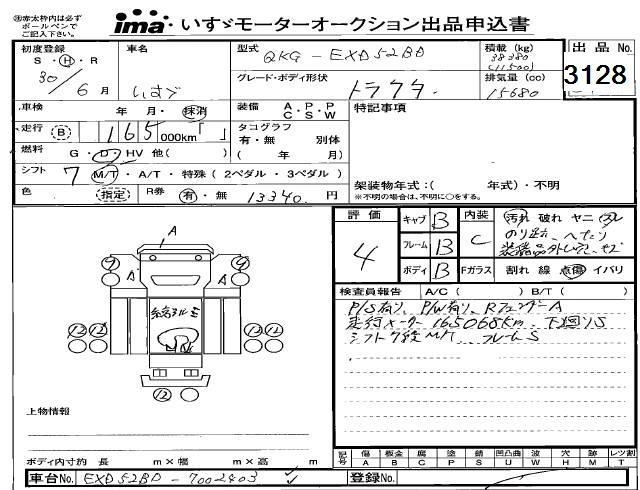 ㊟赤太枠内は必ず
ボールペンで
ご記入下さい。
ima いすゞモーターオークション出品申込書
初度登録 車名 型式 QKG-EXD52BD 積載(kg) 38380 (11500) 出品No.
S・H・R 30/6月 いすゞ グレード・ボディ形状 トラクタ 排気量(cc) 15680 3128
車検 年・月・抹消 装備 A・P・P C・S・W 特記事項
走行 B 165 000km「 」 タコグラフ 有・無 別体
燃料 G・D・HV 他( ) ( 年 月)
シフト 7 M/T・A/T・特殊(2ペダル・3ペダル) 架装物年式:( 年式)・不明
色 (指定) R券 有・無 13340円 *不明の場合は、不明に○をする。
評価 4 キャブ B 内装 C 汚れ 破れ ヤニ スレ
フレーム B のり跡、へたり
ボディ B Fガラス 割れ 線 点傷 イバリ
検査員報告 A/C( ) B/T( )
P/S有り、P/W有り、RフェンダーA
走行メーター165068km、下回りS
シフト7速M/T フレームS
A
9 9
A A
12 12 12 12
12
上物情報
ボディ内寸約 長 m×幅 m×高 m
記号 傷 A 板金 B 腐 C 凹 P 塗 P 錆 S 凹凸曲 U 波 W 穴 H 跡 M レツ割 T
車台No. EXD52BD-7002403 登録No.